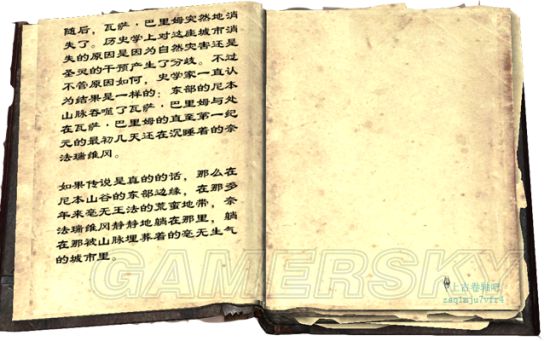 随后，瓦萨·巴里姆突然地消
失了。历史学上对这座城市消
失的原因是因为自然灾害还是
圣灵的干预产生了分歧。不过
不管原因如何，史学家一直认
为结果是一样的：东部的尼本
山脉吞噬了瓦萨·巴里姆与处
在瓦萨·巴里姆的直至第一纪
元的最初几天还在沉睡着的奈
法瑞维风。
如果传说是真的的话，那么在
尼本山谷的东部边缘，在那多
年来毫无王法的荒蛮地带，奈
法瑞维风静静地躺在那里，躺
在那被山脉埋葬着的毫无生气
的城市里。
GAMERSKY
上古卷轴吧
zaq1mju7vfr4